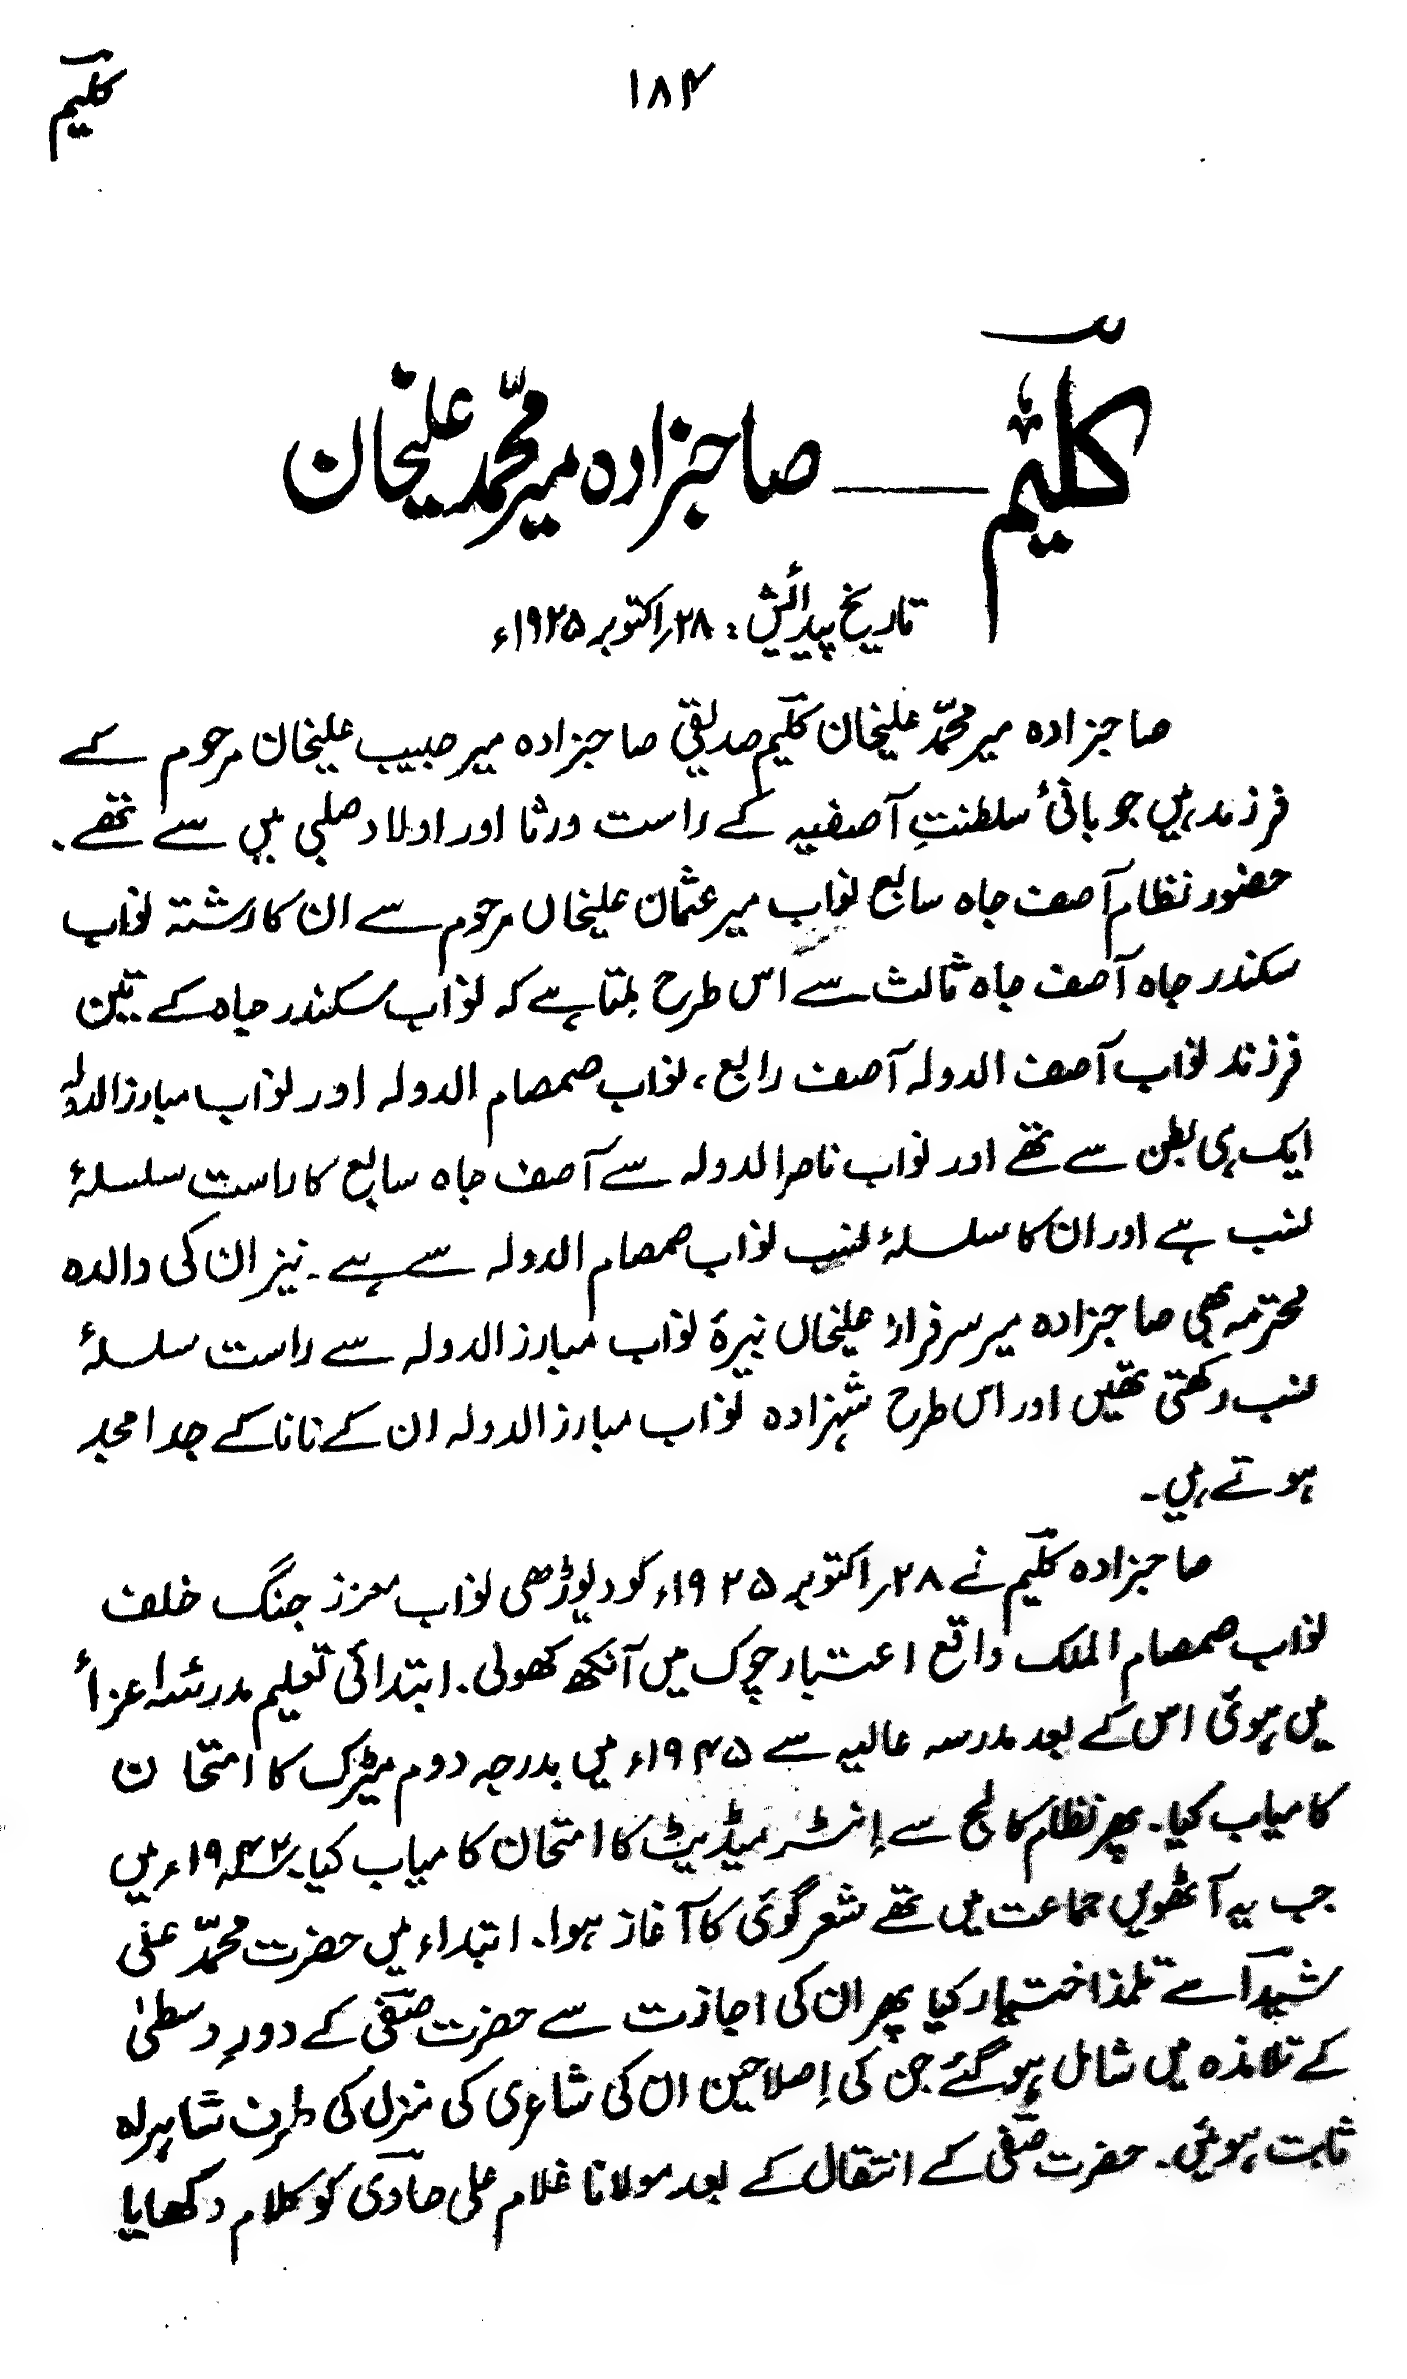 کلیم
۱۸۴
کلیم ــــ صاحبزادہ میر محمد علیخان
تاریخ پیدائش: ۲۸؍اکتوبر ۱۹۲۵ء
صاحبزادہ میر محمّد علیخان کلیم صدیقی صاحبزادہ میر حبیب علیخان مرحوم کے
فرزند ہیں جو بانیٔ سلطنتِ آصفیہ کے راست ورثا اور اولاد صلبی میں سے تھے۔
حضور نظام آصف جاہ سابع نواب میر عثمان علیخاں مرحوم سے ان کا رشتہ نواب
سکندر جاہ آصف جاہ ثالث سے اس طرح ملتا ہے کہ نواب سکندر جاہ کے تین
فرزند نواب آصف الدولہ آصف رابع، نواب صمصام الدولہ اور نواب مبارز الدولہ
ایک ہی بطن سے تھے اور نواب ناصر الدولہ سے آصف جاہ سابع کا راست سلسلۂ
نسب ہے اور ان کا سلسلۂ نسب نواب صمصام الدولہ سے ہے۔ نیز ان کی والدہ
محترمہ بھی صاحبزادہ میر سرفراز علیخاں نبیرۂ نواب مبارز الدولہ سے راست سلسلۂ
نسب رکھتی تھیں اور اس طرح شہزادہ نواب مبارز الدولہ ان کے نانا کے جد امجد
ہوتے ہیں۔
صاحبزادہ کلیم نے ۲۸؍اکتوبر ۱۹۲۵ء کو دیوڑھی نواب معزز جنگ خلف
نواب صمصام الملک واقع اعتبار چوک میں آنکھ کھولی۔ ابتدائی تعلیم مدرسہ اعزا
میں ہوئی اس کے بعد مدرسہ عالیہ سے ۱۹۴۵ء میں بدرجہ دوم میٹرک کا امتحان
کامیاب کیا۔ پھر نظام کالج سے اِنٹرمیڈیٹ کا امتحان کامیاب کیا۔ ۱۹۴۲ء میں
جب یہ آٹھویں جماعت میں تھے شعر گوئی کا آغاز ہوا۔ ابتداء میں حضرت محمّد غنی
شیدا سے تلمذ اختیار کیا پھر ان کی اجازت سے حضرت صفی کے دورِ وسطیٰ
کے تلامذہ میں شامل ہوگئے جن کی اِصلاحیں ان کی شاعری کی منزل کی طرف شاہراہ
ثابت ہوئیں۔ حضرت صفی کے انتقال کے بعد مولانا غلام علی حاوی کو کلام دکھایا